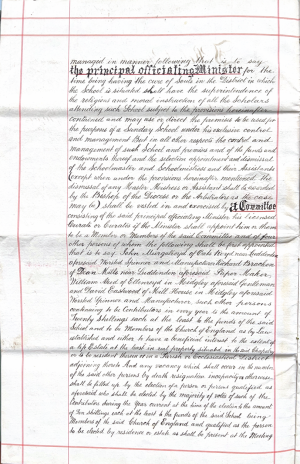 managed in manner following that is to say
the principal officiating Minister for the
time being having the cure of Souls in the District in which
the School is situated shall have the superintendence of
the religious and moral instruction of all the Scholars
attending such School subject to the provisions hereinafter
contained and may use or direct the premises to be used for
the purposes of a Sunday School under his exclusive control
and management But in all other respects the control and
management of such School and premises and of the funds and
endowments thereof and the selection appointment and dismissal
of the Schoolmaster and Schoolmistress and their Assistants
except when under the provisions hereinafter contained the
dismissal of any Master Mistress or Assistant shall be awarded
by the Bishop of the Diocese or the Arbitrators as the case
may be shall be vested in and exercised by A Committee
consisting of the said principal officiating Minister his licensed
Curate or Curates if the Minister shall appoint him or them
to be a Member or Members of the said Committee and of
other persons of whom the following shall be first appointed
that is to say John Murgatroyd of Oats Royd near
aforesaid Worsted Spinner and Manufacturer
of Dean Mills near Luddenden aforesaid Paper Maker
William of in Midgley aforesaid Gentleman
and David of House in Midgley aforesaid
Worsted Spinner and Manufacturer such other persons
continuing to be Contributors in every year to the amount of
Twenty Shillings each at the least to the funds of the said
School and to be Members of the Church of England as by Law
established and either to have a beneficial interest to the extent of
a life Estate at the least in real property situated in the said
or to be resident therein or in a Parish or Ecclesiastical District
adjoining thereto And any vacancy which shall occur in the number
of the said other persons by death resignation incapacity or otherwise
shall be filled up by the election of a person or persons qualified as
aforesaid who shall be elected by the majority of votes of such of the
Contributors during the Year current at the time of the election to the amount
of Ten shillings each at the least to the funds of the said School being
Members of the said Church of England and qualified as the person
to be elected by residence or estate as shall be present at the Meeting